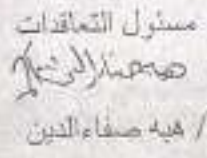 مسئول التعاقدات
/ هبه صفاء الدين